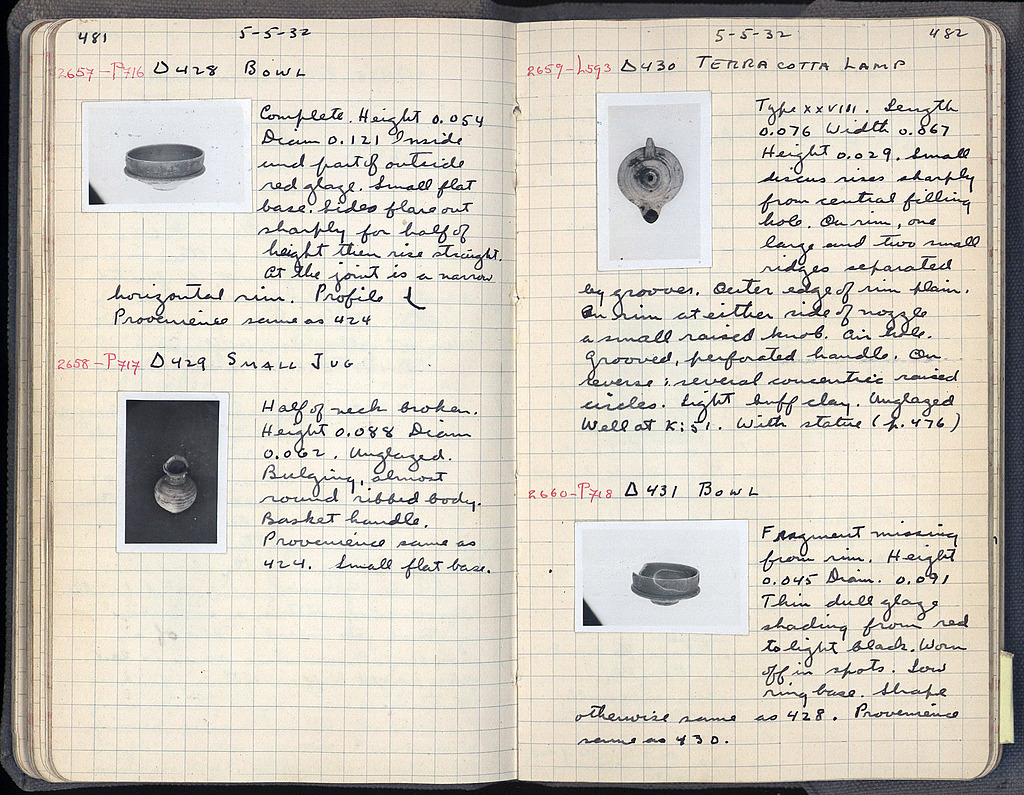 481 5-5-32
2657-P716 Δ428 BOWL
Complete. Height 0.054
Diam 0.121 Inside
and part of outside
red glaze. Small flat
base. Sides flare out
sharply for half of
height then rise straight.
At the joint is a narrow
horizontal rim. Profile
Provenience same as 424
2658-P717 Δ429 SMALL JUG
Half of neck broken.
Height 0.088 Diam
0.062. Unglazed.
Bulging, almost
round ribbed body.
Basket handle.
Provenience same as
424. Small flat base.
5-5-32 482
2659-L593 Δ430 TERRACOTTA LAMP
Type XXVIII. Length
0.076 Width 0.867
Height 0.029. Small
discus rises sharply
from central filling
hole. On rim, one
large and two small
ridges separated
by grooves. Outer edge of rim plain.
On rim at either side of nozzle
a small raised knob. Air hole.
Grooved, perforated handle. On
reverse: several concentric raised
circles. Light buff clay. Unglazed
Well at K:51. With statue (p. 476)
2660-P718 Δ431 BOWL
Fragment missing
from rim. Height
0.045 Diam. 0.091
Thin dull glaze
shading from red
to light black. Worn
off in spots. Low
ring base. Shape
otherwise same as 428. Provenience
same as 430.